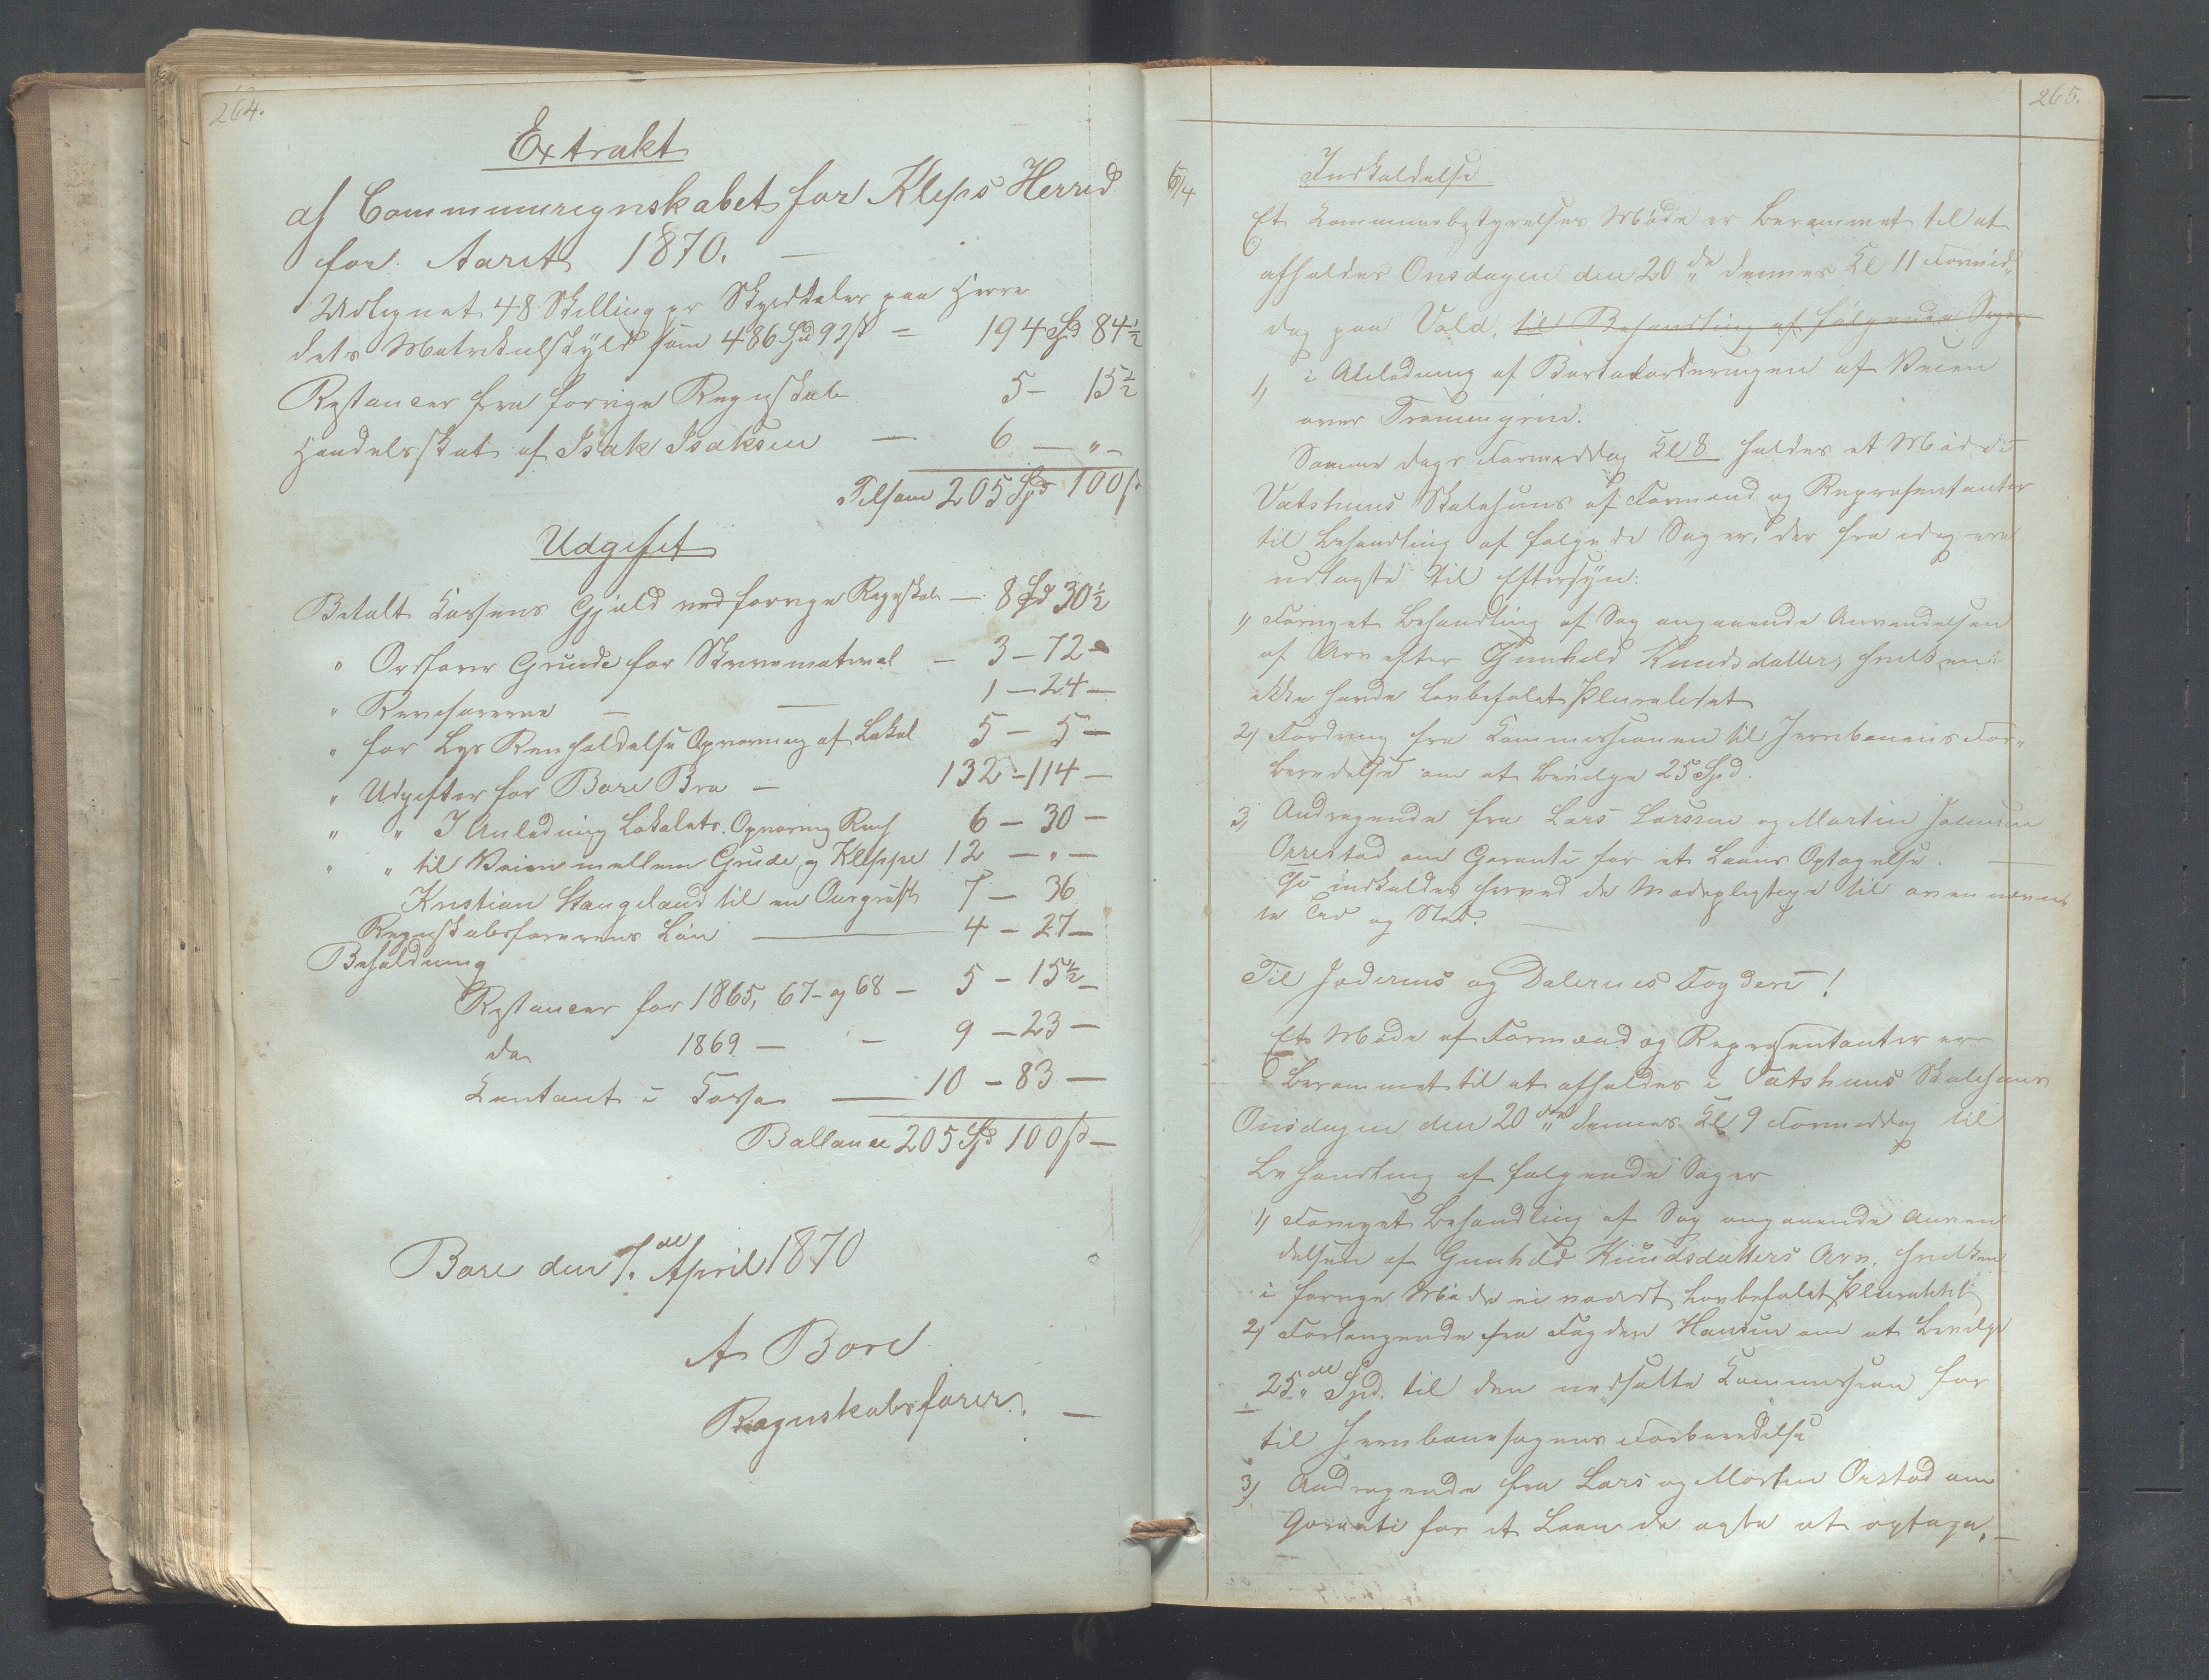 264.
Extrakt
af Communeregnskabet for Kleps Herred
for Aaret 1870. —
Udlignet 48 Skilling pr Skylddaler paa Herre
dets Matrikulskyld som 486 Spd 92 ß — 194 Spd 84½
Restancer fra forrige Regnskab 5 – 15½
Handelsskat af Isak Isaksen — 6 — „ –
Tilsam 205 Spd 100 ß
Udgifet
Betalt Kassens Gjæld ved forrige Regnskab — 8 Spd 30½
„ Ordfører Grude for Skrivematerial — 3 – 72 –
„ Revisorerne — — 1 – 24 –
„ for Lys Renholdelse Opvarmng af Lokal 5 – 5 –
„ Udgifter for Bore Bro — 132 – 114 –
„ „ I Anledning Lokalets Opvarmng 6 – 30 –
„ „ til Veien mellem Grude og Kleppe 12 – „ –
Kristian Stangeland til en 7 – 36
Regnskabsførerens Løn — 4 – 27 –
Beholdning
Restancer for 1865, 67 – og 68 — 5 – 15½ –
do 1869 — — 9 – 23 –
Kontant i Kassa — 10 – 83 –
Ballance 205 Spd 100 ß –
Bore den 7.de April 1870
A Bore
Regnskabsfører. —
265.
6/4
Indkaldelse
Et Kommunebestyrelses Møde er berammet til at
afholdes Onsdagen den 20de dennes Kl 11 Formid„
dag paa Vold, til Behandling af følgende Sager
1) i Anledning af Bortakorderingen af Veien
over
Samme dags Formiddag Kl 8 holdes et Møde i
Vatshuus Skolehuus af Formænd og Repræsentanter
til Behandling af følgende Sager, der fra idag ere
udlagte til Eftersyn:
1) Fornyet Behandling af Sag angaaende Anvendelsen
af Arv efter Gunhild Knudsdatter, hvilken
ikke havde lovbefalet Pluralitet
2) Fordring fra Kommissionen til Jernbanens For„
beredelse om at bevilge 25 Spd.
3) Andragende fra Lars Larssen og Martin
Orrestad om Garanti for et Laans Optagelse. —
Thi indkaldes herved de Mødepligtige til ovennævn
te Tid og Sted. —
Til Jæderens og Dalernes Fogderi!
Et Møde af Formænd og Repræsentanter er
berammet til at afholdes i Vatshuus Skolehuus
Onsdagen den 20de dennes Kl 9 Formiddag til
Behandling af følgende Sager
1) Fornyet Behandling af Sag angaaende Anven
delsen af Gunhild Knudsdatters Arv, hvilken
i forrige Møde ei naaede lovbefalet Pluralitet
2) Forlangende fra Fogden Hansen om at bevilge
25de Spd. til den nedsatte Kommission for
til Jernbanesagens Forberedelse
3) Andragende fra Lars og Morten Orstad om
Garanti for et Laan de agte at optage. —